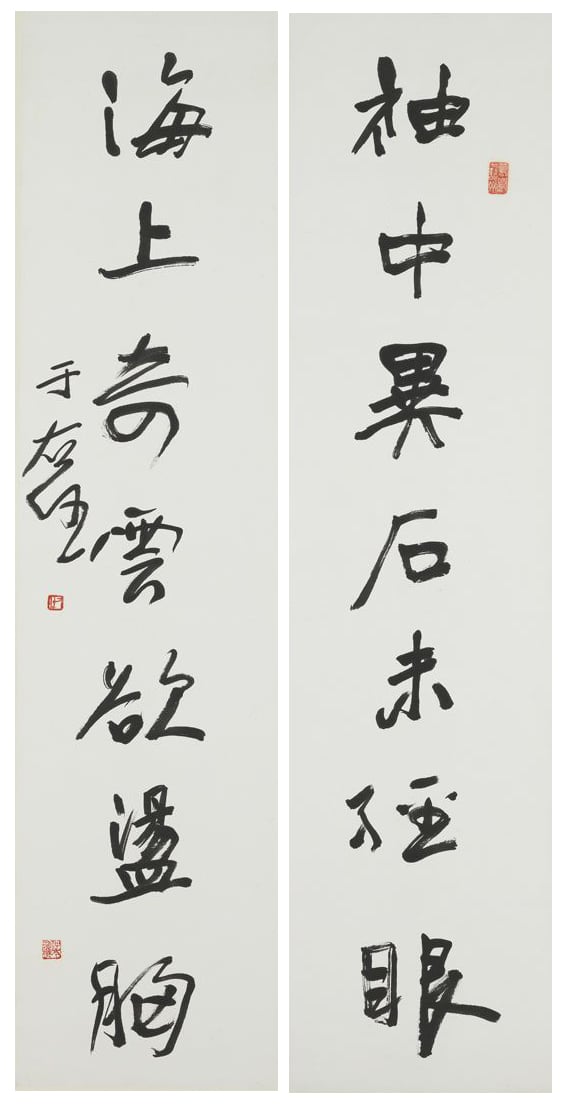 袖中異石未經眼
海上奇雲欲盪胸
于右任